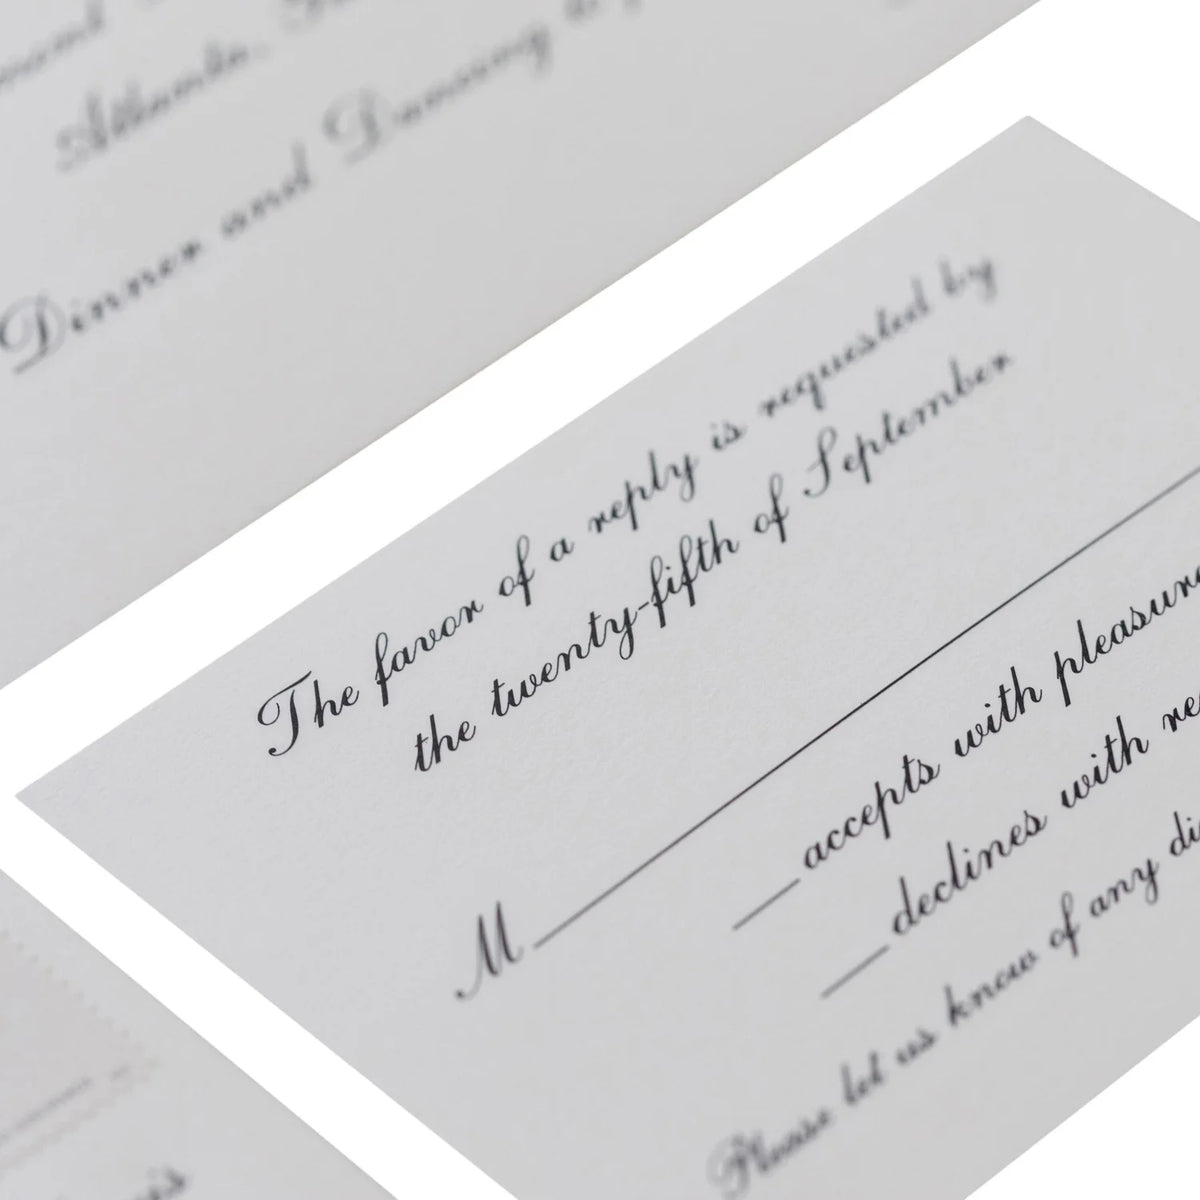 Atlanta,
Dinner and Dancing
The favor of a reply is requested by
the twenty-fifth of September
M
accepts with pleasure
declines with
Please let us know of any